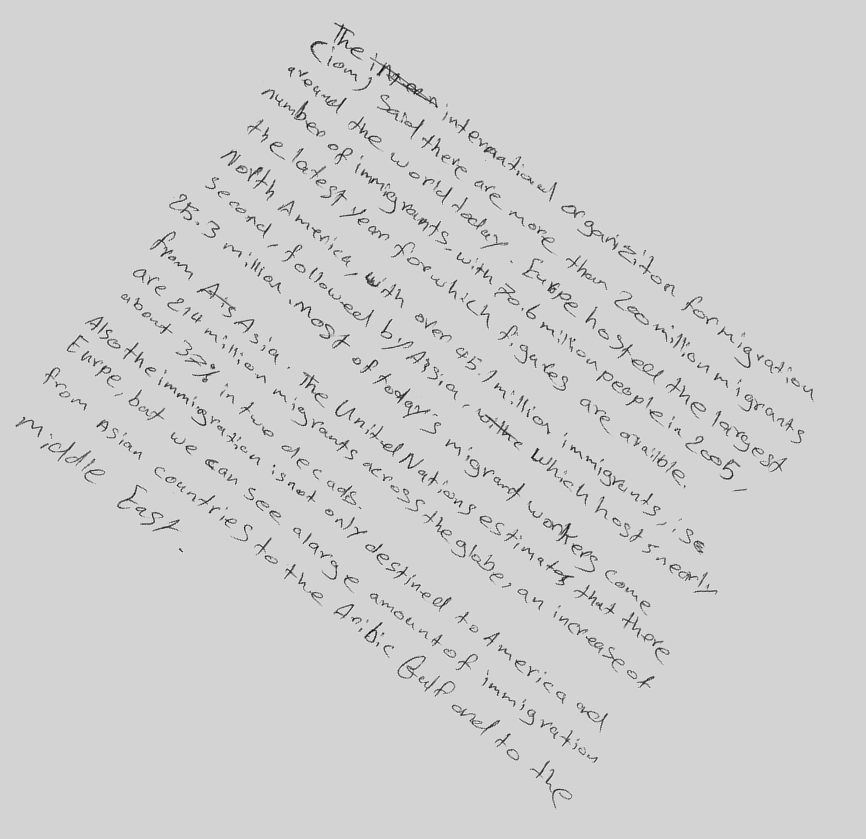 The international organiziton for migration
(iom) said there are more than 200 million migrants
around the world today. Eurpe hosted the largest
number of immigrants, with 70.6 million people in 2005,
the latest year for which figures are availble.
North America, with over 45.1 million immigrants, is
second, followed by Assia, which hosts nearly
25.3 million. Most of today's migrant workers come
from Asia. The United Nations estimates that there
are 214 million migrants across the globe, an increase of
about 37% in two decads.
Also the immigration is not only destined to America ad
Eurpe, but we can see alarge amount of immigration
from Asian countries to the Aribic Gulf and to the
Middle East.